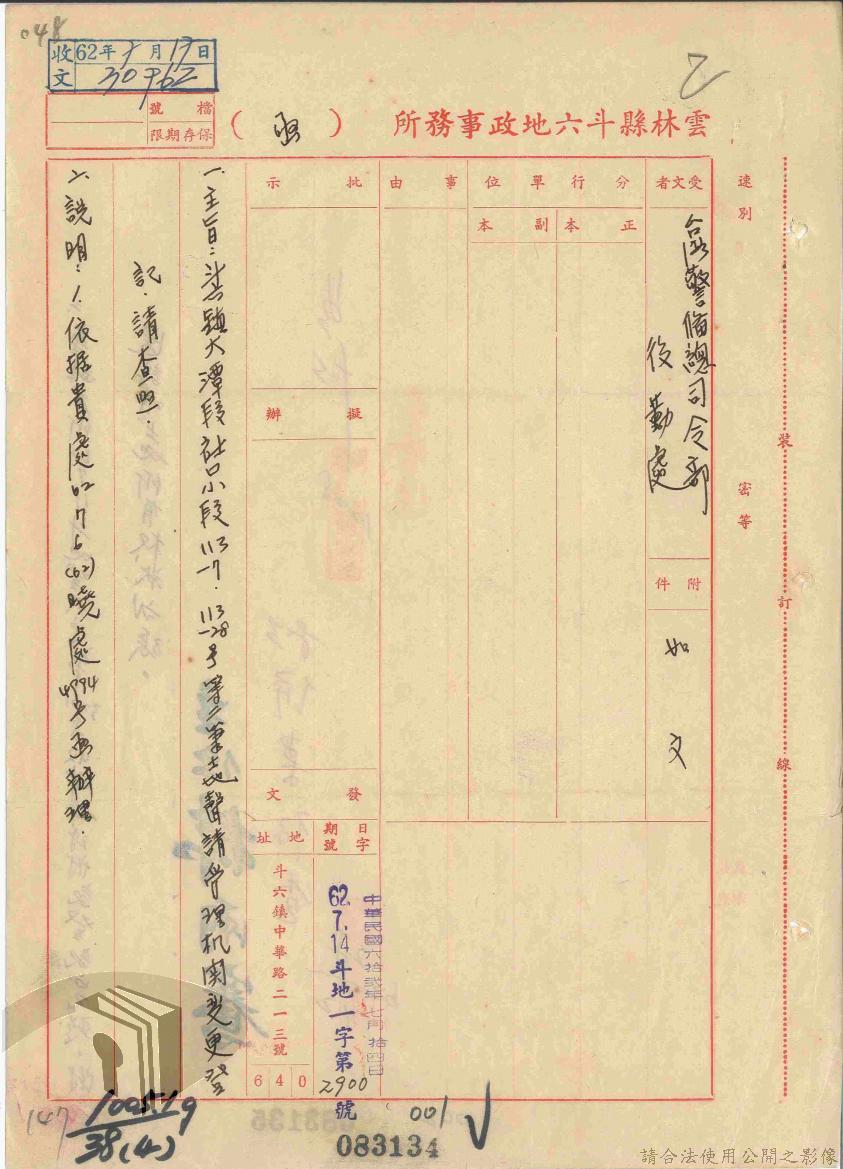 048
收文 62年7月17日
30962
檔號
保存期限
雲林縣斗六地政事務所（函）
速別
密等
受文者
台灣警備總司令部
後勤處
附件
如文
分行單位
正本
副本
事由
批示
擬辦
發文
日期
字號
中華民國六拾貳年七月拾四日
62.7.14斗地一字第2900號
地址
斗六鎮中華路二一三號
640
一、主旨：斗六鎮大潭段社口小段113-7．113-28号等二筆土地聲請管理机関変更登
記．請查照．
二、說明：1.依據貴處62 7 6(62)曉處4794号函辦理．
裝
訂
線
147
1005.19
38(4)
001
083134
請合法使用公開之影像